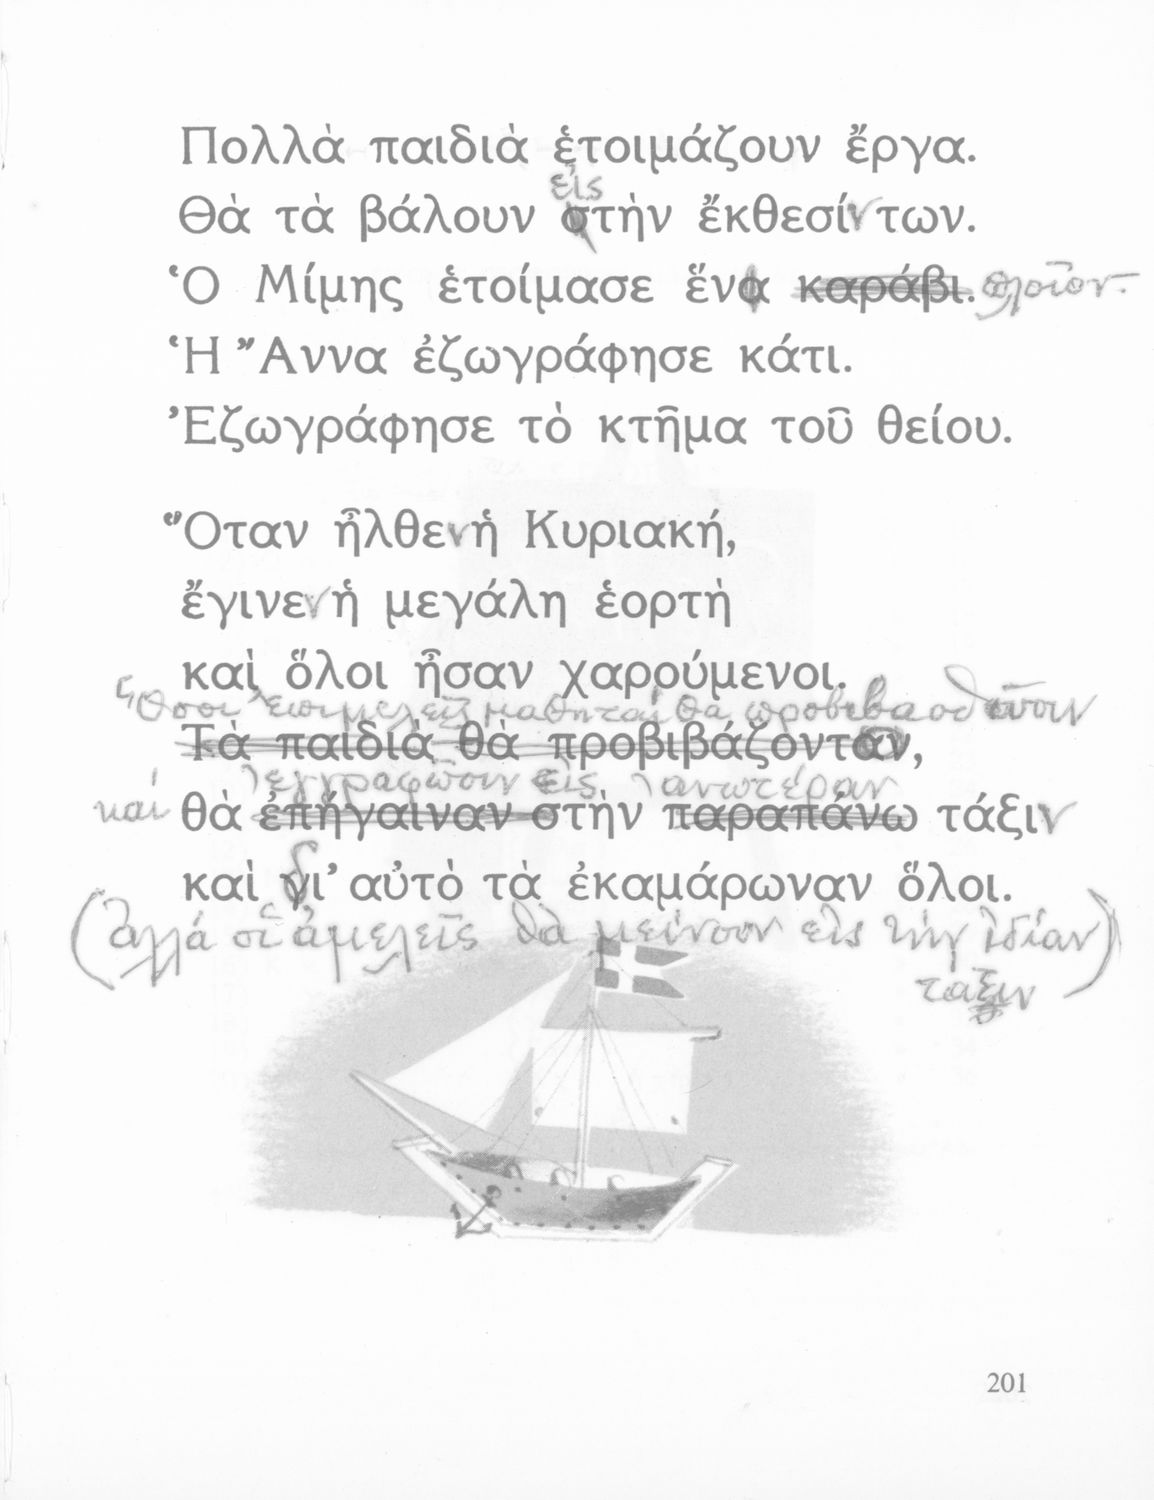 Πολλὰ παιδιὰ ἑτοιμάζουν ἔργα.
εἰς
Θὰ τὰ βάλουν στὴν ἔκθεσίν των.
Ὁ Μίμης ἑτοίμασε ἕνα καράβι. πλοῖον.
Ἡ Ἄννα ἐζωγράφησε κάτι.
Ἐζωγράφησε τὸ κτῆμα τοῦ θείου.
Ὅταν ἦλθεν ἡ Κυριακή,
ἔγινεν ἡ μεγάλη ἑορτὴ
καὶ ὅλοι ἦσαν χαρούμενοι.
Ὅσοι ἐπιμελεῖς μαθηταί θὰ προβιβασθοῦσιν
Τὰ παιδιὰ θὰ προβιβάζονταν,
ἐγγραφῶσιν εἰς ἀνωτέραν
καί θὰ ἐπήγαιναν στὴν παραπάνω τάξιν
καὶ δι' αὐτὸ τὰ ἐκαμάρωναν ὅλοι.
(ἀλλά οἱ ἀμελεῖς θὰ μείνουν εἰς τὴν ἰδίαν)
ταξιν
201